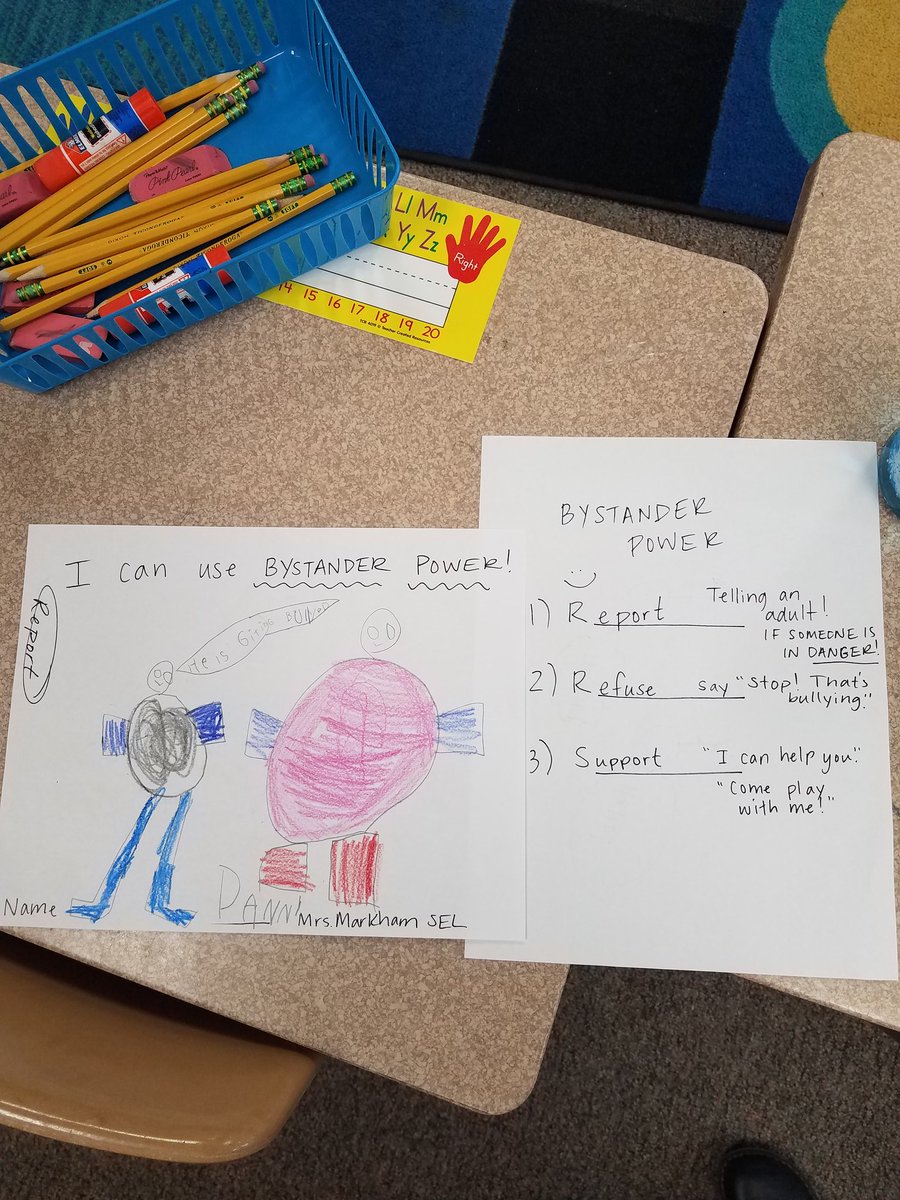 Pink Pearl
TICONDEROGA
Ll Mm
Yy Zz
Right
14 15 16 17 18 19 20
TCR 4019 © Teacher Created Resources
I can use BYSTANDER POWER!
Report
He is Giting BUllyed
Name
DANNY
Mrs. Markham SEL
BYSTANDER
POWER
1) Report Telling an
adult!
IF SOMEONE IS
IN DANGER!
2) Refuse say "Stop! That's
bullying."
3) Support "I can help you."
"Come play
with me!"